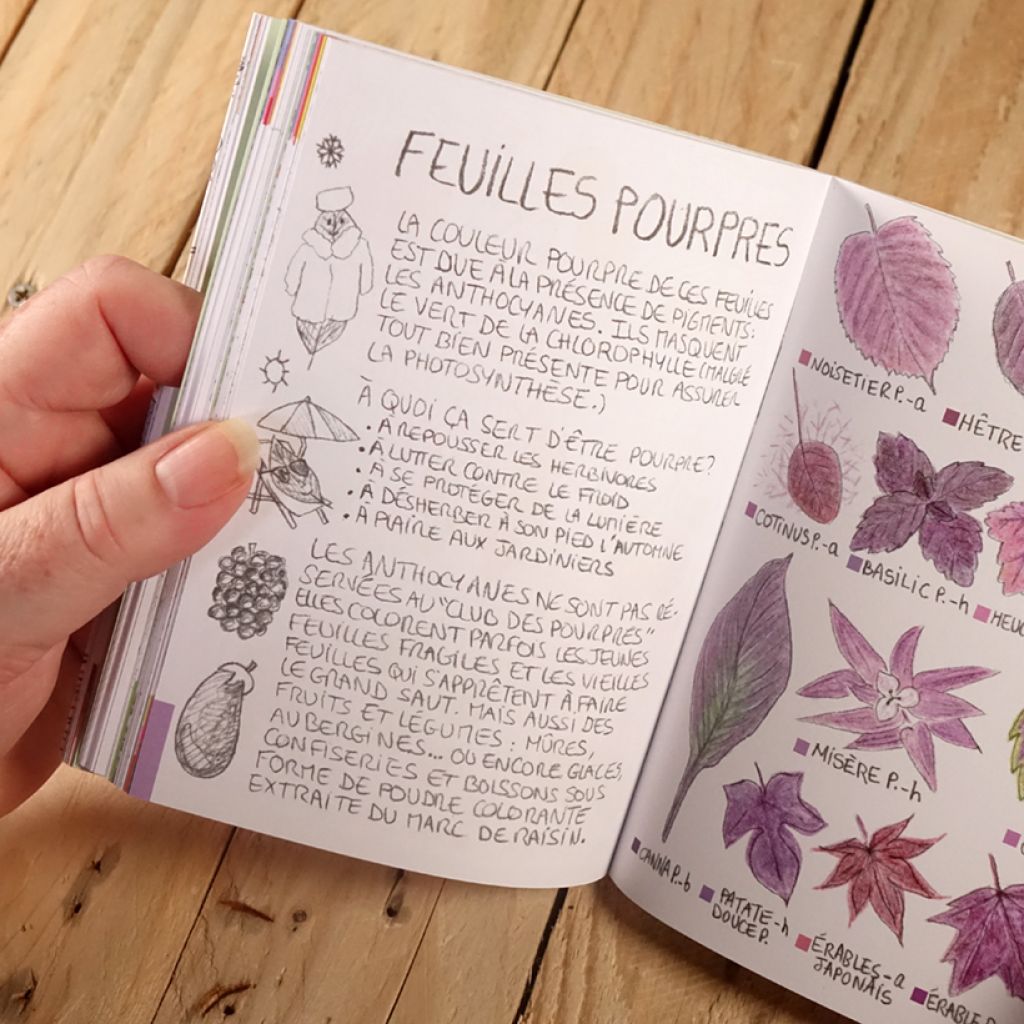 FEUILLES POURPRES
LA COULEUR POURPRE DE CES FEUILLES
EST DUE À LA PRÉSENCE DE PIGMENTS:
LES ANTHOCYANES. ILS MASQUENT
LE VERT DE LA CHLOROPHYLLE (MALGRÉ
TOUT BIEN PRÉSENTE POUR ASSURER
LA PHOTOSYNTHÈSE.)
À QUOI ÇA SERT D'ÊTRE POURPRE?
• À REPOUSSER LES HERBIVORES
• À LUTTER CONTRE LE FROID
• À SE PROTÉGER DE LA LUMIÈRE
• À DÉSHERBER À SON PIED L'AUTOMNE
• À PLAIRE AUX JARDINIERS
LES ANTHOCYANES NE SONT PAS RÉ-
SERVÉES AU "CLUB DES POURPRES"
ELLES COLORENT PARFOIS LES JEUNES
FEUILLES FRAGILES ET LES VIEILLES
FEUILLES QUI S'APPRÊTENT À FAIRE
LE GRAND SAUT. MAIS AUSSI DES
FRUITS ET LÉGUMES : MÛRES,
AUBERGINES... OU ENCORE GLACES,
CONFISERIES ET BOISSONS SOUS
FORME DE POUDRE COLORANTE
EXTRAITE DU MARC DE RAISIN.
NOISETIER P.-a
HÊTRE
COTINUS P.-a
BASILIC P.-h
HEUC
MISÈRE P.-h
CANNA P.-b
PATATE-h
DOUCE P.
ÉRABLES-a
JAPONAIS
ÉRABLE P